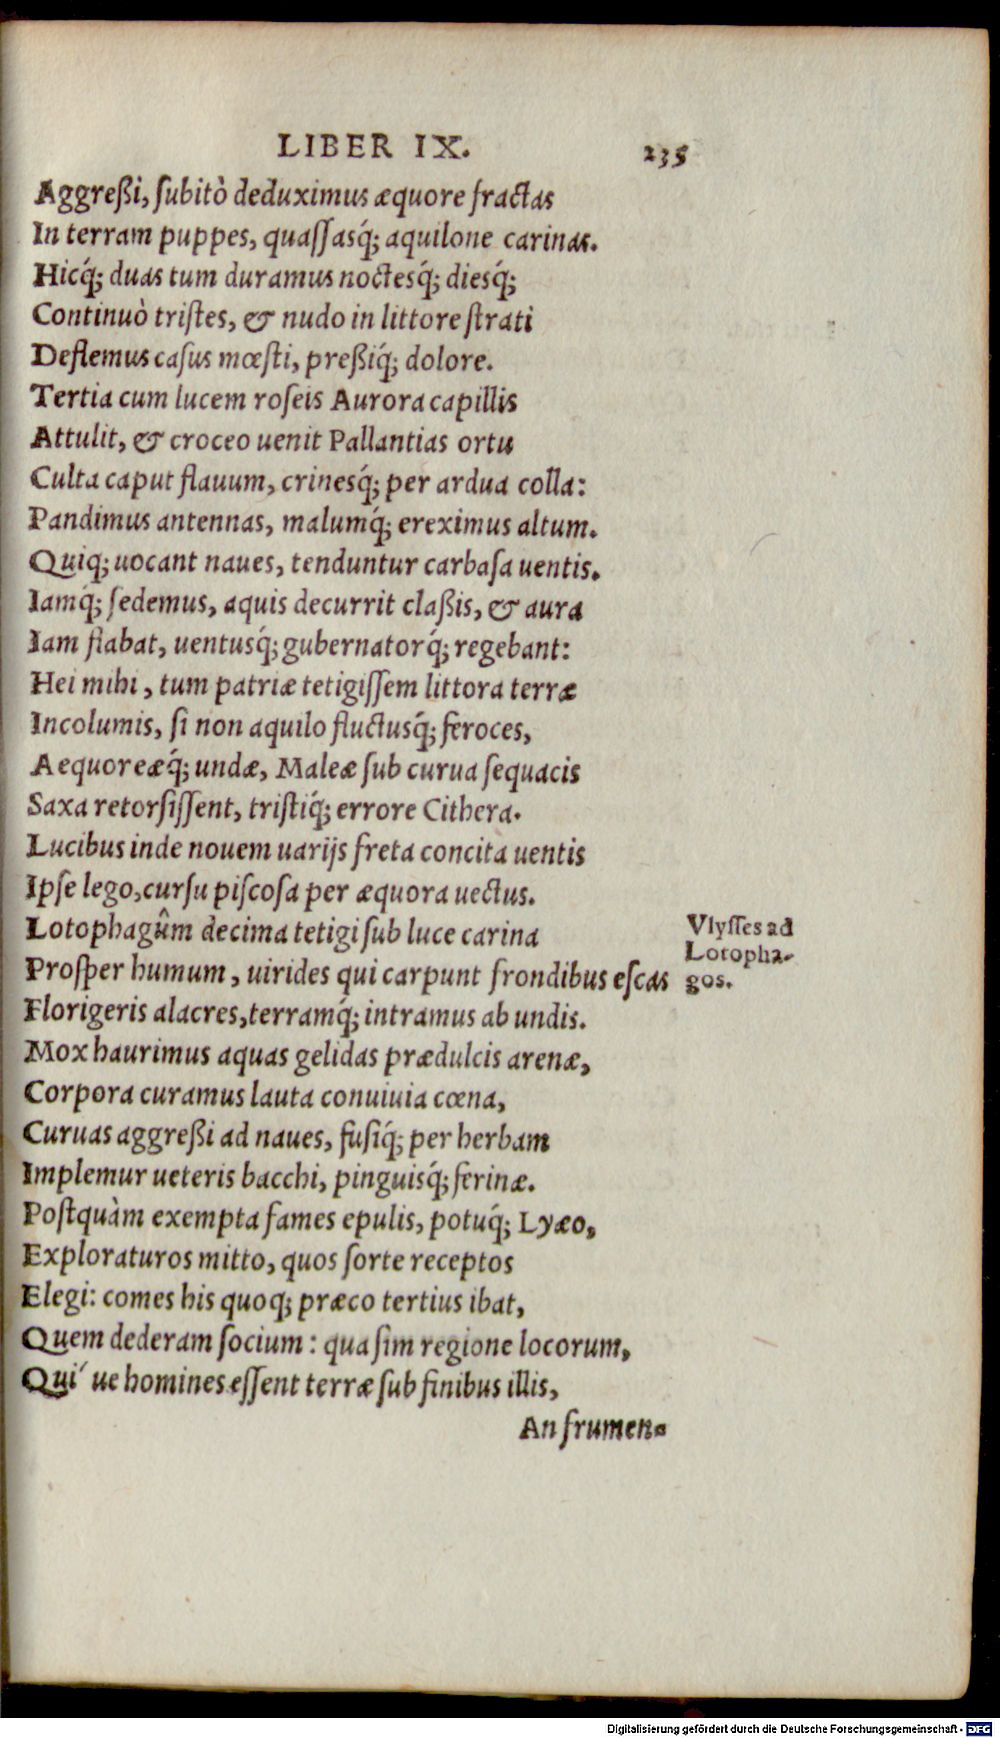 LIBER IX. 235
Aggreßi, ſubitò deduximus æquore fractas
In terram puppes, quaſſasq́; aquilone carinas.
Hicq́; duas tum duramus noctesq́; diesq́;
Continuò triſtes, & nudo in littore ſtrati
Deflemus caſus mœſti, preßiq́; dolore.
Tertia cum lucem roſeis Aurora capillis
Attulit, & croceo uenit Pallantias ortu
Culta caput flauum, crinesq́; per ardua colla:
Pandimus antennas, malumq́; ereximus altum.
Quiq; uocant naues, tenduntur carbaſa uentis.
Iamq́; ſedemus, aquis decurrit claßis, & aura
Iam flabat, uentusq́; gubernatorq́; regebant:
Hei mihi, tum patriæ tetigiſſem littora terræ
Incolumis, ſi non aquilo fluctusq́; feroces,
Aequoreæq́; undæ, Maleæ ſub curua ſequacis
Saxa retorſiſſent, triſtiq́; errore Cithera.
Lucibus inde nouem uarijs freta concita uentis
Ipſe lego, curſu piſcoſa per æquora uectus.
Lotophagûm decima tetigi ſub luce carina
Proſper humum, uirides qui carpunt frondibus eſcas
Florigeris alacres, terramq́; intramus ab undis.
Mox haurimus aquas gelidas prædulcis arenæ,
Corpora curamus lauta conuiuia cœna,
Curuas aggreßi ad naues, fuſiq́; per herbam
Implemur ueteris bacchi, pinguisq́; ferinæ.
Poſtquàm exempta fames epulis, potuq́; Lyæo,
Exploraturos mitto, quos ſorte receptos
Elegi: comes his quoq; præco tertius ibat,
Quem dederam ſocium: qua ſim regione locorum,
Qui' ue homines eſſent terræ ſub finibus illis,
An frumen-
Vlyſſes ad
Lotopha-
gos.
Digitalisierung gefördert durch die Deutsche Forschungsgemeinschaft - DFG